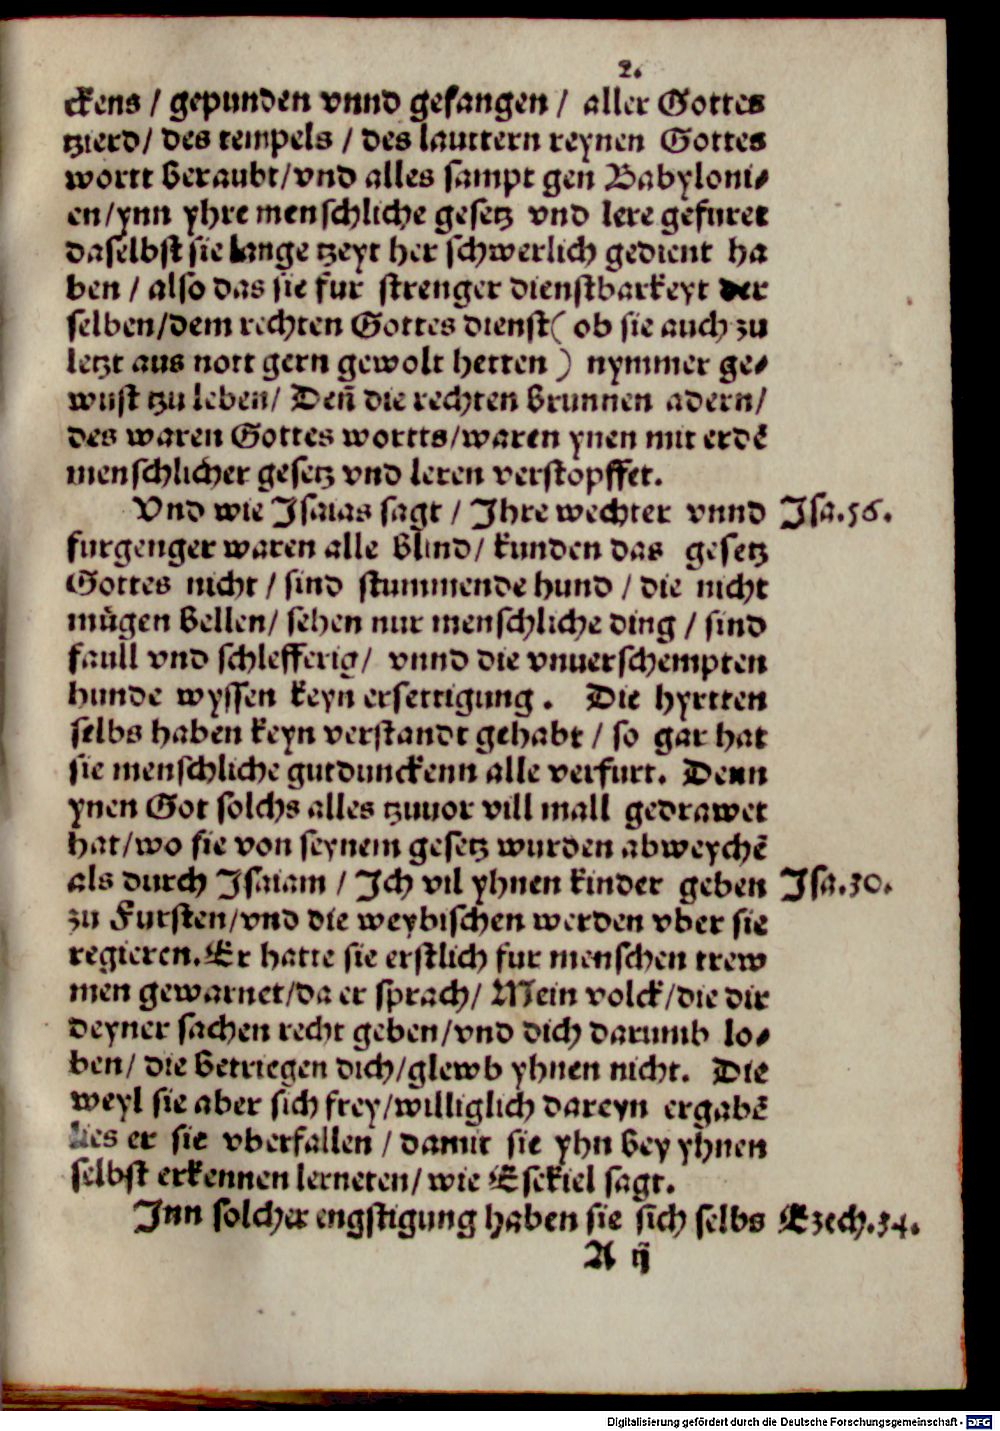 2.
ckens / gepunden vnnd gefangen / aller Gottes
tzierd/ des tempels / des lauttern reynen Gottes
wortt beraubt/vnd alles sampt gen Babyloni⸗
en/ynn yhre menschliche gesetz vnd lere gefuret
daselbst sie lange tzeyt her schwerlich gedient ha
ben / also das sie fur strenger dienstbarkeyt der
selben/dem rechten Gottes dienst( ob sie auch zu
letzt aus nott gern gewolt hetten ) nymmer ge⸗
wust tzu leben/ Deñ die rechten brunnen adern/
des waren Gottes wortts/waren ynen mit erdẽ
menschlicher gesetz vnd leren verstopffet.
Vnd wie Isaias sagt / Ihre wechter vnnd Isa.56.
furgenger waren alle blind/ kunden das gesetz
Gottes nicht / sind stummende hund / die nicht
můgen bellen/ sehen nur menschliche ding / sind
faull vnd schlefferig/ vnnd die vnuerschempten
hunde wyssen keyn ersettigung . Die hyrtten
selbs haben keyn verstandt gehabt / so gar hat
sie menschliche gutdunckenn alle verfurt. Denn
ynen Got solchs alles tzuuor vill mall gedrawet
hat/wo sie von seynem gesetz wurden abweychẽ
als durch Isaiam / Ich vil yhnen kinder geben Isa.30.
zu Fursten/vnd die weybischen werden vber sie
regieren.Er hatte sie erstlich fur menschen trew
men gewarnet/da er sprach/ Mein volck/die dir
deyner sachen recht geben/vnd dich darumb lo⸗
ben/ die betriegen dich/glewb yhnen nicht. Die
weyl sie aber sich frey/williglich dareyn ergabẽ
lies er sie vberfallen / damit sie yhn bey yhnen
selbst erkennen lerneten/ wie Esekiel sagt.
Inn solcher engstigung haben sie sich selbs Ezech.34.
A ij
Digitalisierung gefördert durch die Deutsche Forschungsgemeinschaft - DFG